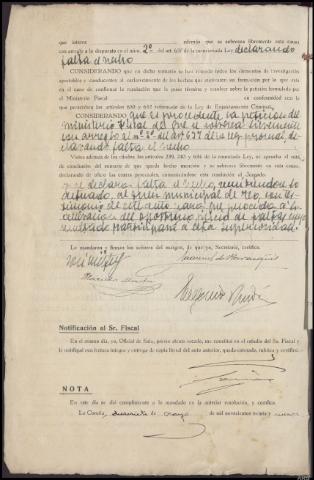 que intere                    ndemia que se sobresea libremente esta causa
con arreglo a lo dispuesto en el núm. 2º del art. 637 de la mencionada Ley, declarando
falta el hecho
CONSIDERANDO que en dicho sumario se han reunido todos los elementos de investigación
aportables y conducentes al esclarecimiento de los hechos que motivaron su formación por lo que está
en el caso de confirmar la resolución que lo puso término y resolver sobre la petición formulada por
el Ministerio Fiscal                    en conformidad con lo
que preceptúan los artículos 630 y 632 reformado de la Ley de Enjuiciamiento Criminal.
CONSIDERANDO que es procedente la petición del
ministerio Fiscal de que se sobresea libremente
con arreglo al nº 2º del art 637 de la ley procesal de-
clarando falta el hecho
Vistos además de los citados, los artículos 239, 240 y 644 de la mencionada Ley, se aprueba el auto de
conclusión del sumario de que queda hecho mención y se sobresee libremente en esta causa,
declarando de oficio las costas procesales, comunicándose esta resolución al Juzgado.
se declara falta el hecho, remitiendo lo
actuado, al juez municipal de
timonio de este auto para que proceda a la
celebración del oportuno juicio de faltas cuyo
resultado participará a esta superioridad.
Lo mandaron y firman los señores del margen, de que yo, Secretario, certifico.
Notificación al Sr. Fiscal
En el mismo día, yo, Oficial de Sala, previo atento recado, me constituí en el estudio del Sr. Fiscal y
le notifiqué con lectura íntegra y entrega de copia literal del auto anterior, queda enterado, rubrica y certifico.
NOTA
En este día se dió cumplimiento a lo mandado en la anterior resolución, y certifico.
La Coruña, de mayo de mil novecientos treinta y